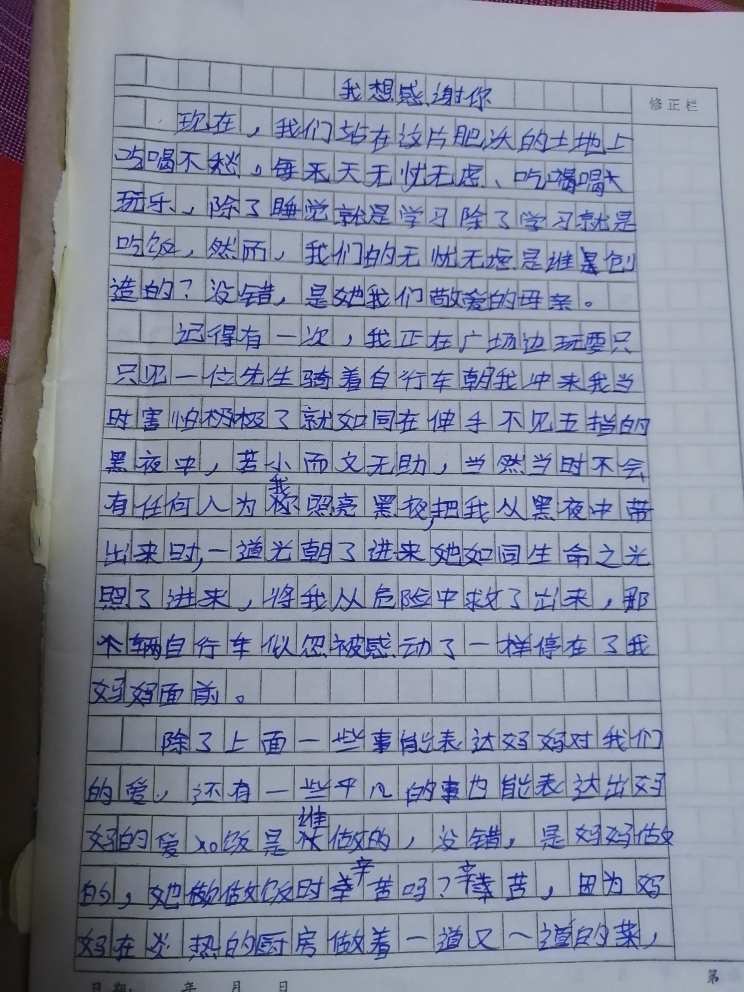 我想感谢你
修正栏
现在，我们站在这片肥沃的土地上
吃喝不愁，每天无忧无虑、吃喝
玩乐、除了睡觉就是学习除了学习就是
吃饭，然而，我们的无忧无虑是谁创
造的？没错，是她我们敬爱的母亲。
记得有一次，我正在广场边玩耍只
只见一位先生骑着自行车朝我冲来我当
时害怕极极了就如同在伸手不见五指的
黑夜中，若小而文无助，当然当时不会
有任何人为我照亮黑夜，把我从黑夜中带
出来时，一道光朝了进来她如同生命之光
照了进来，将我从危险中救了出来，那
辆自行车似忽被感动了一样停在了我
妈妈面前。
除了上面一些事能表达妈妈对我们
的爱，还有一些平凡的事也能表达出妈
妈的爱如饭是谁做的，没错，是妈妈做
的，她做饭时辛苦吗？辛苦，因为妈
妈在炎热的厨房做着一道又一道的菜，
日期： 年 月 日
第